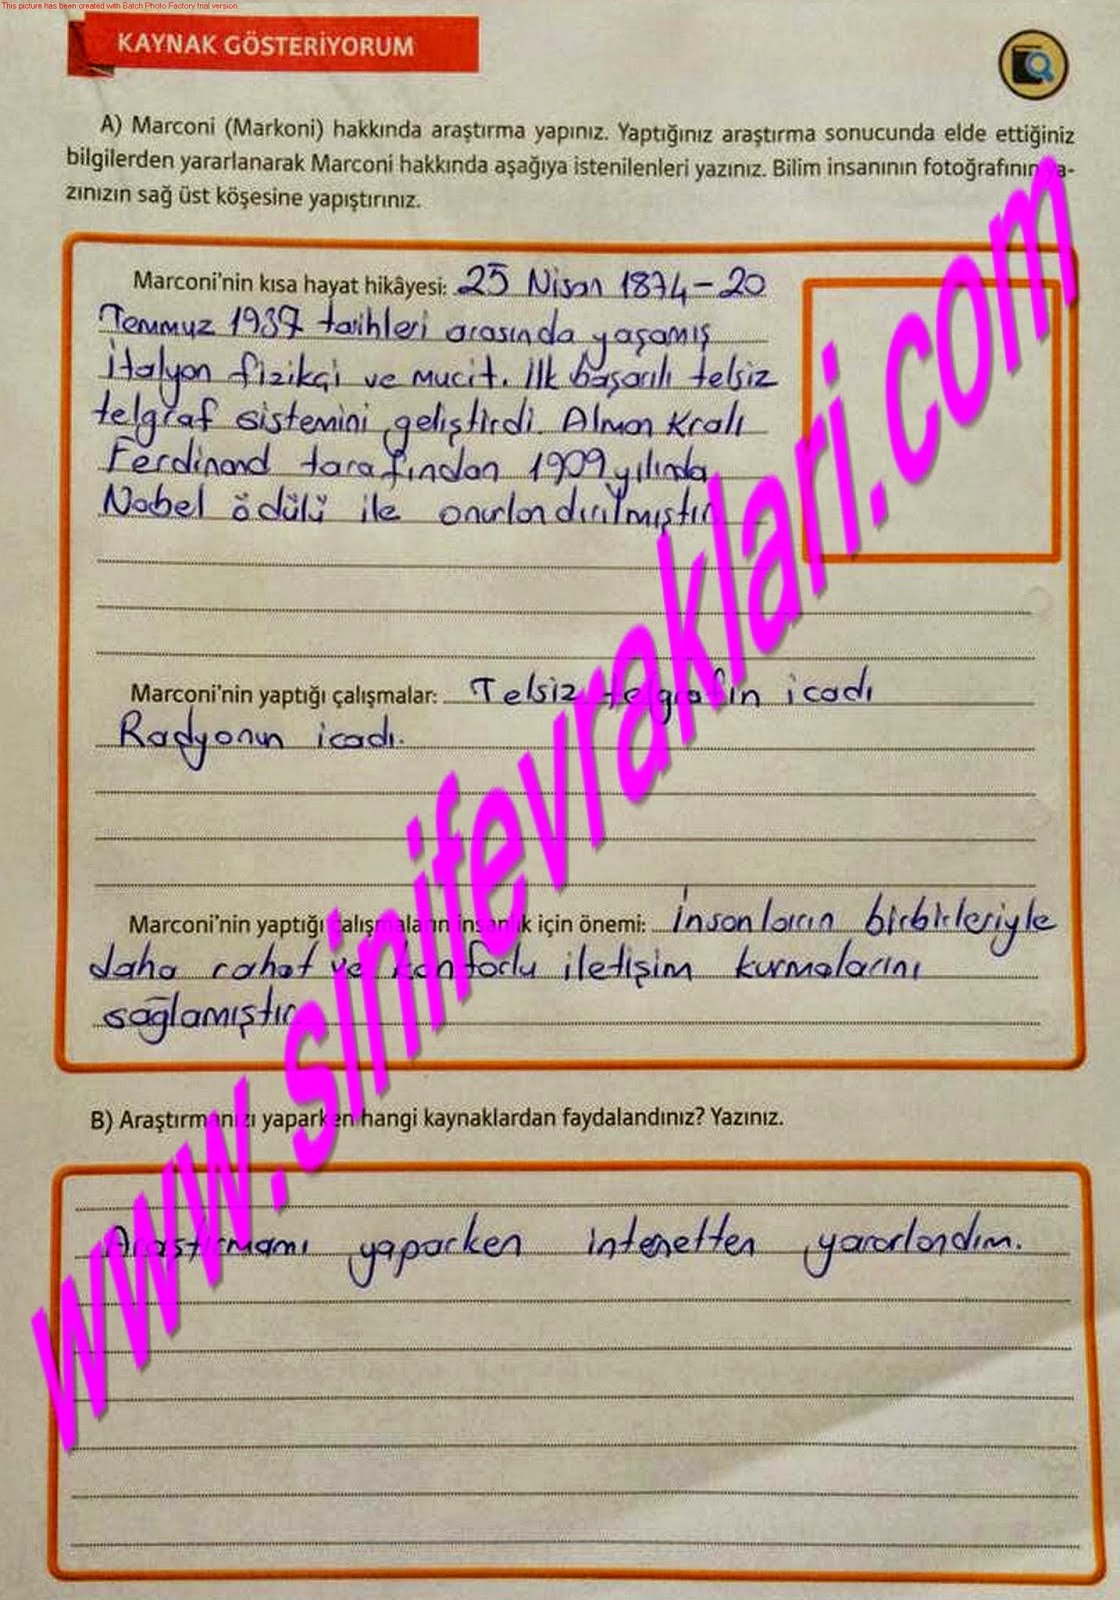 This picture has been created with Batch Photo Factory trial version.
KAYNAK GÖSTERİYORUM
A) Marconi (Markoni) hakkında araştırma yapınız. Yaptığınız araştırma sonucunda elde ettiğiniz
bilgilerden yararlanarak Marconi hakkında aşağıya istenilenleri yazınız. Bilim insanının fotoğrafının ya-
zınızın sağ üst köşesine yapıştırınız.
Marconi'nin kısa hayat hikâyesi: 25 Nisan 1874-20
Temmuz 1937 tarihleri arasında yaşamış
İtalyan fizikçi ve mucit. İlk başarılı telsiz
telgraf sistemini geliştirdi. Alman Kralı
Ferdinand tarafından 1909 yılında
Nobel ödülü ile onurlandırılmıştır
Marconi'nin yaptığı çalışmalar: Telsiz telgrafın icadı
Radyonun icadı.
Marconi'nin yaptığı çalışmaların insanlık için önemi: İnsanların birbirleriyle
daha rahat ve konforlu iletişim kurmalarını
sağlamıştır
B) Araştırmanızı yaparken hangi kaynaklardan faydalandınız? Yazınız.
Araştırmamı yaparken intenetten yararlandım.
www.sinifevraklari.com